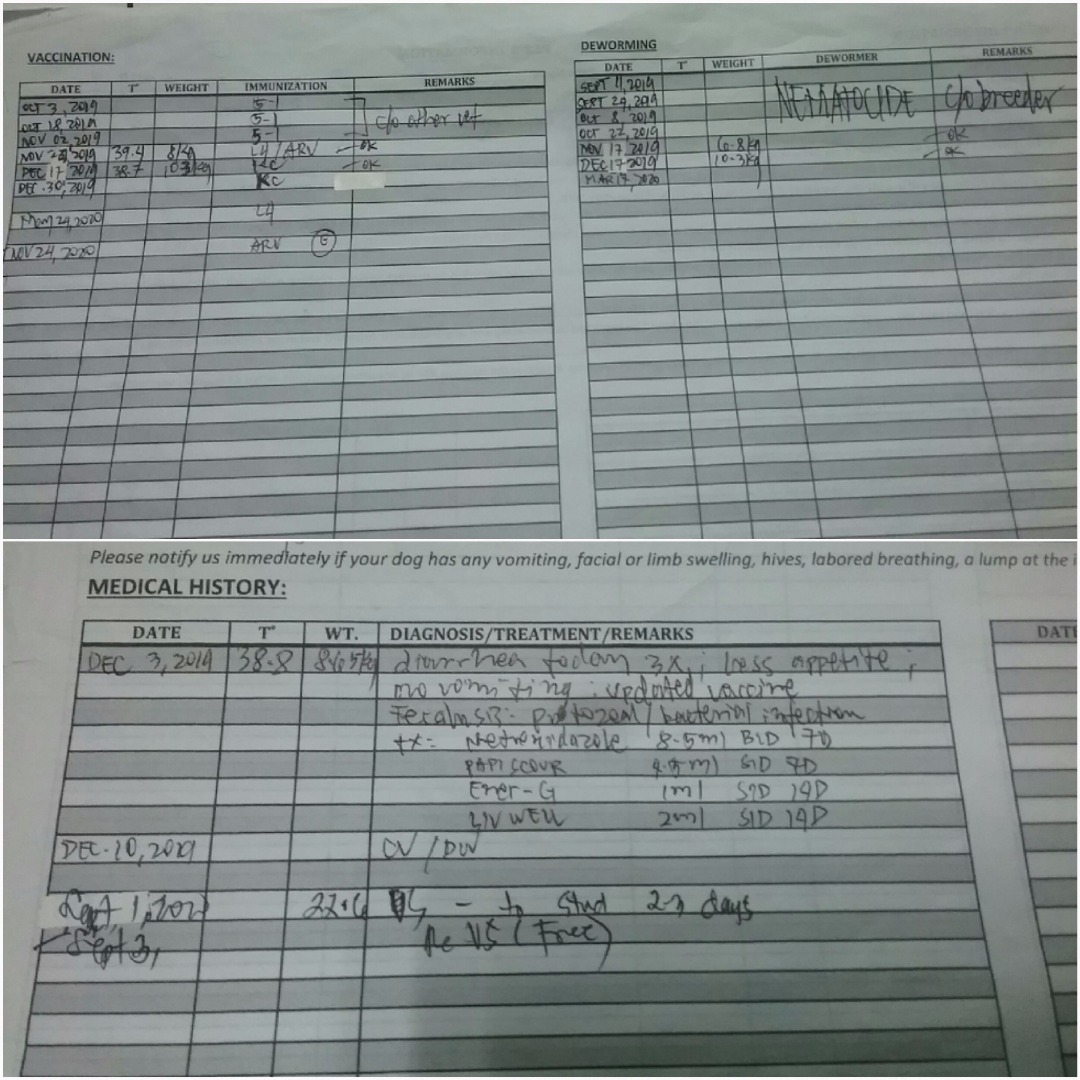 VACCINATION:
DATE T° WEIGHT IMMUNIZATION REMARKS
OCT 3, 2019 5-1
OCT 18, 2019 5-1 c/o other vet
NOV 02, 2019 5-1
NOV 2019 39.4 8 kg L4 / ARV - OK
DEC 17 2019 38.7 10.3 kg KC - OK
DEC. 30, 2019 KC
24, 2020 L4
NOV 24, 2020 ARV
DEWORMING
DATE T° WEIGHT DEWORMER REMARKS
SEPT 11, 2019
SEPT 24, 2019 NEMATOCIDE c/o breeder
OCT 8, 2019
OCT 22, 2019 - OK
NOV 17, 2019 - OK
DEC 17 2019 10.3 kg
MAR 17, 2020
Please notify us immediately if your dog has any vomiting, facial or limb swelling, hives, labored breathing, a lump at the
MEDICAL HISTORY:
DATE T° WT. DIAGNOSIS/TREATMENT/REMARKS
DEC 3, 2019 38.8 diarrhea today 3x, ; less appetite ;
no vomiting ; updated vaccine
protozoal / bacterial infection
tx = Metronidazole 8.5ml BID 7D
PAPI SCOUR SID 7D
Ener-G 1ml SID 14D
LIV WELL 2ml SID 14D
DEC. 10, 2019 CV / DW
Sept 1, 22.6 - to stud 2-3 days
Sept 3, Re VS (Free)
DATE